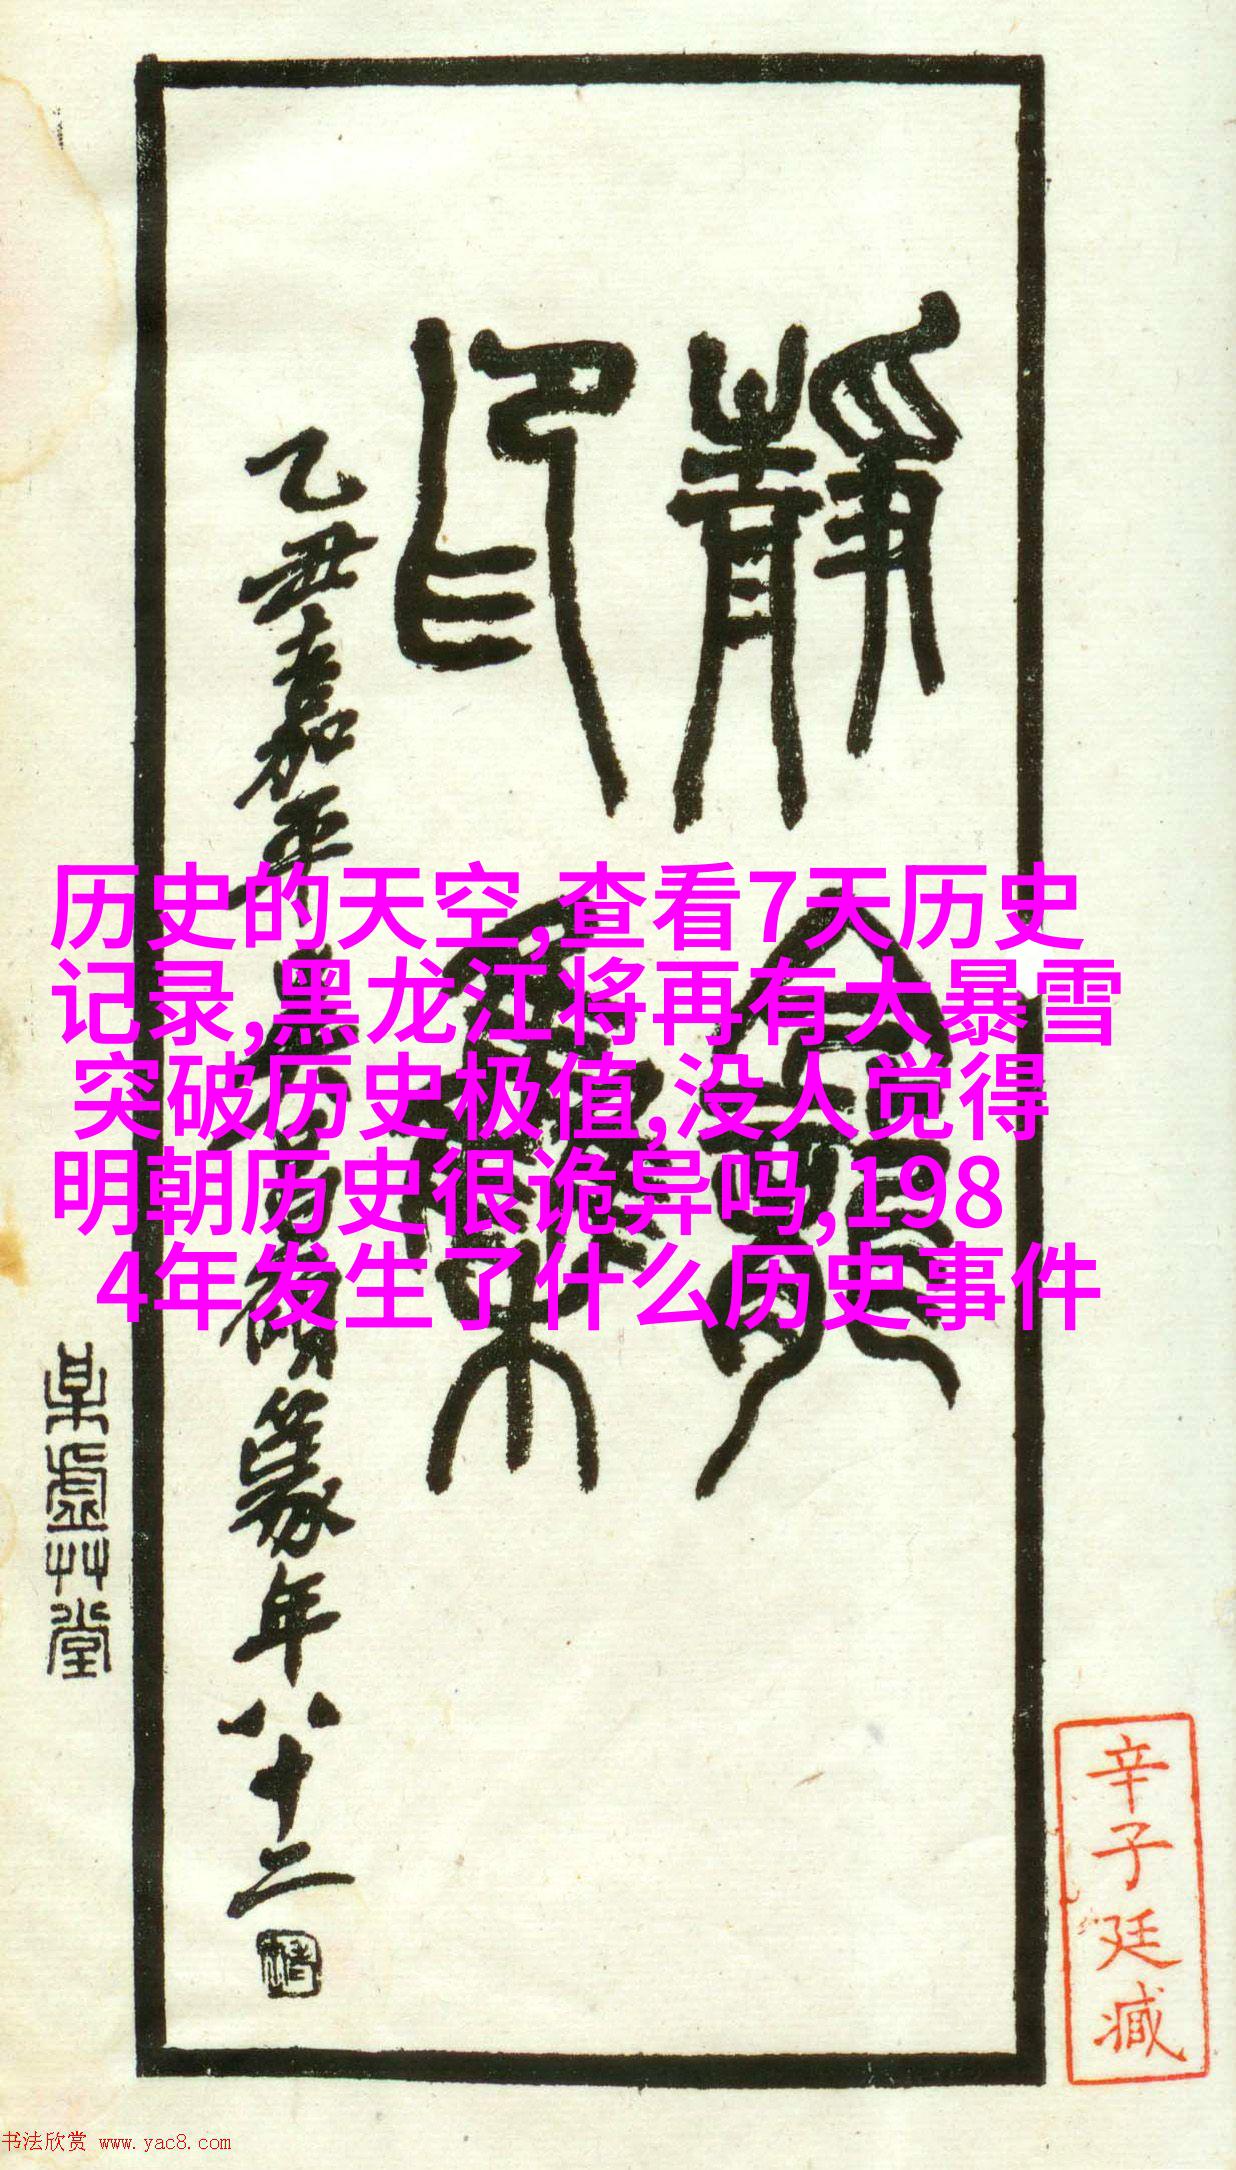 历史的天空,查看7天历史
记录,黑龙江将再有大暴雪
突破历史极值,没人觉得
明朝历史很诡异吗,198
4年发生了什么历史事件
静龛
印集
乙丑嘉平
篆年八十二
某虚艸堂
辛子廷臧
书法欣赏 www.yac8.com